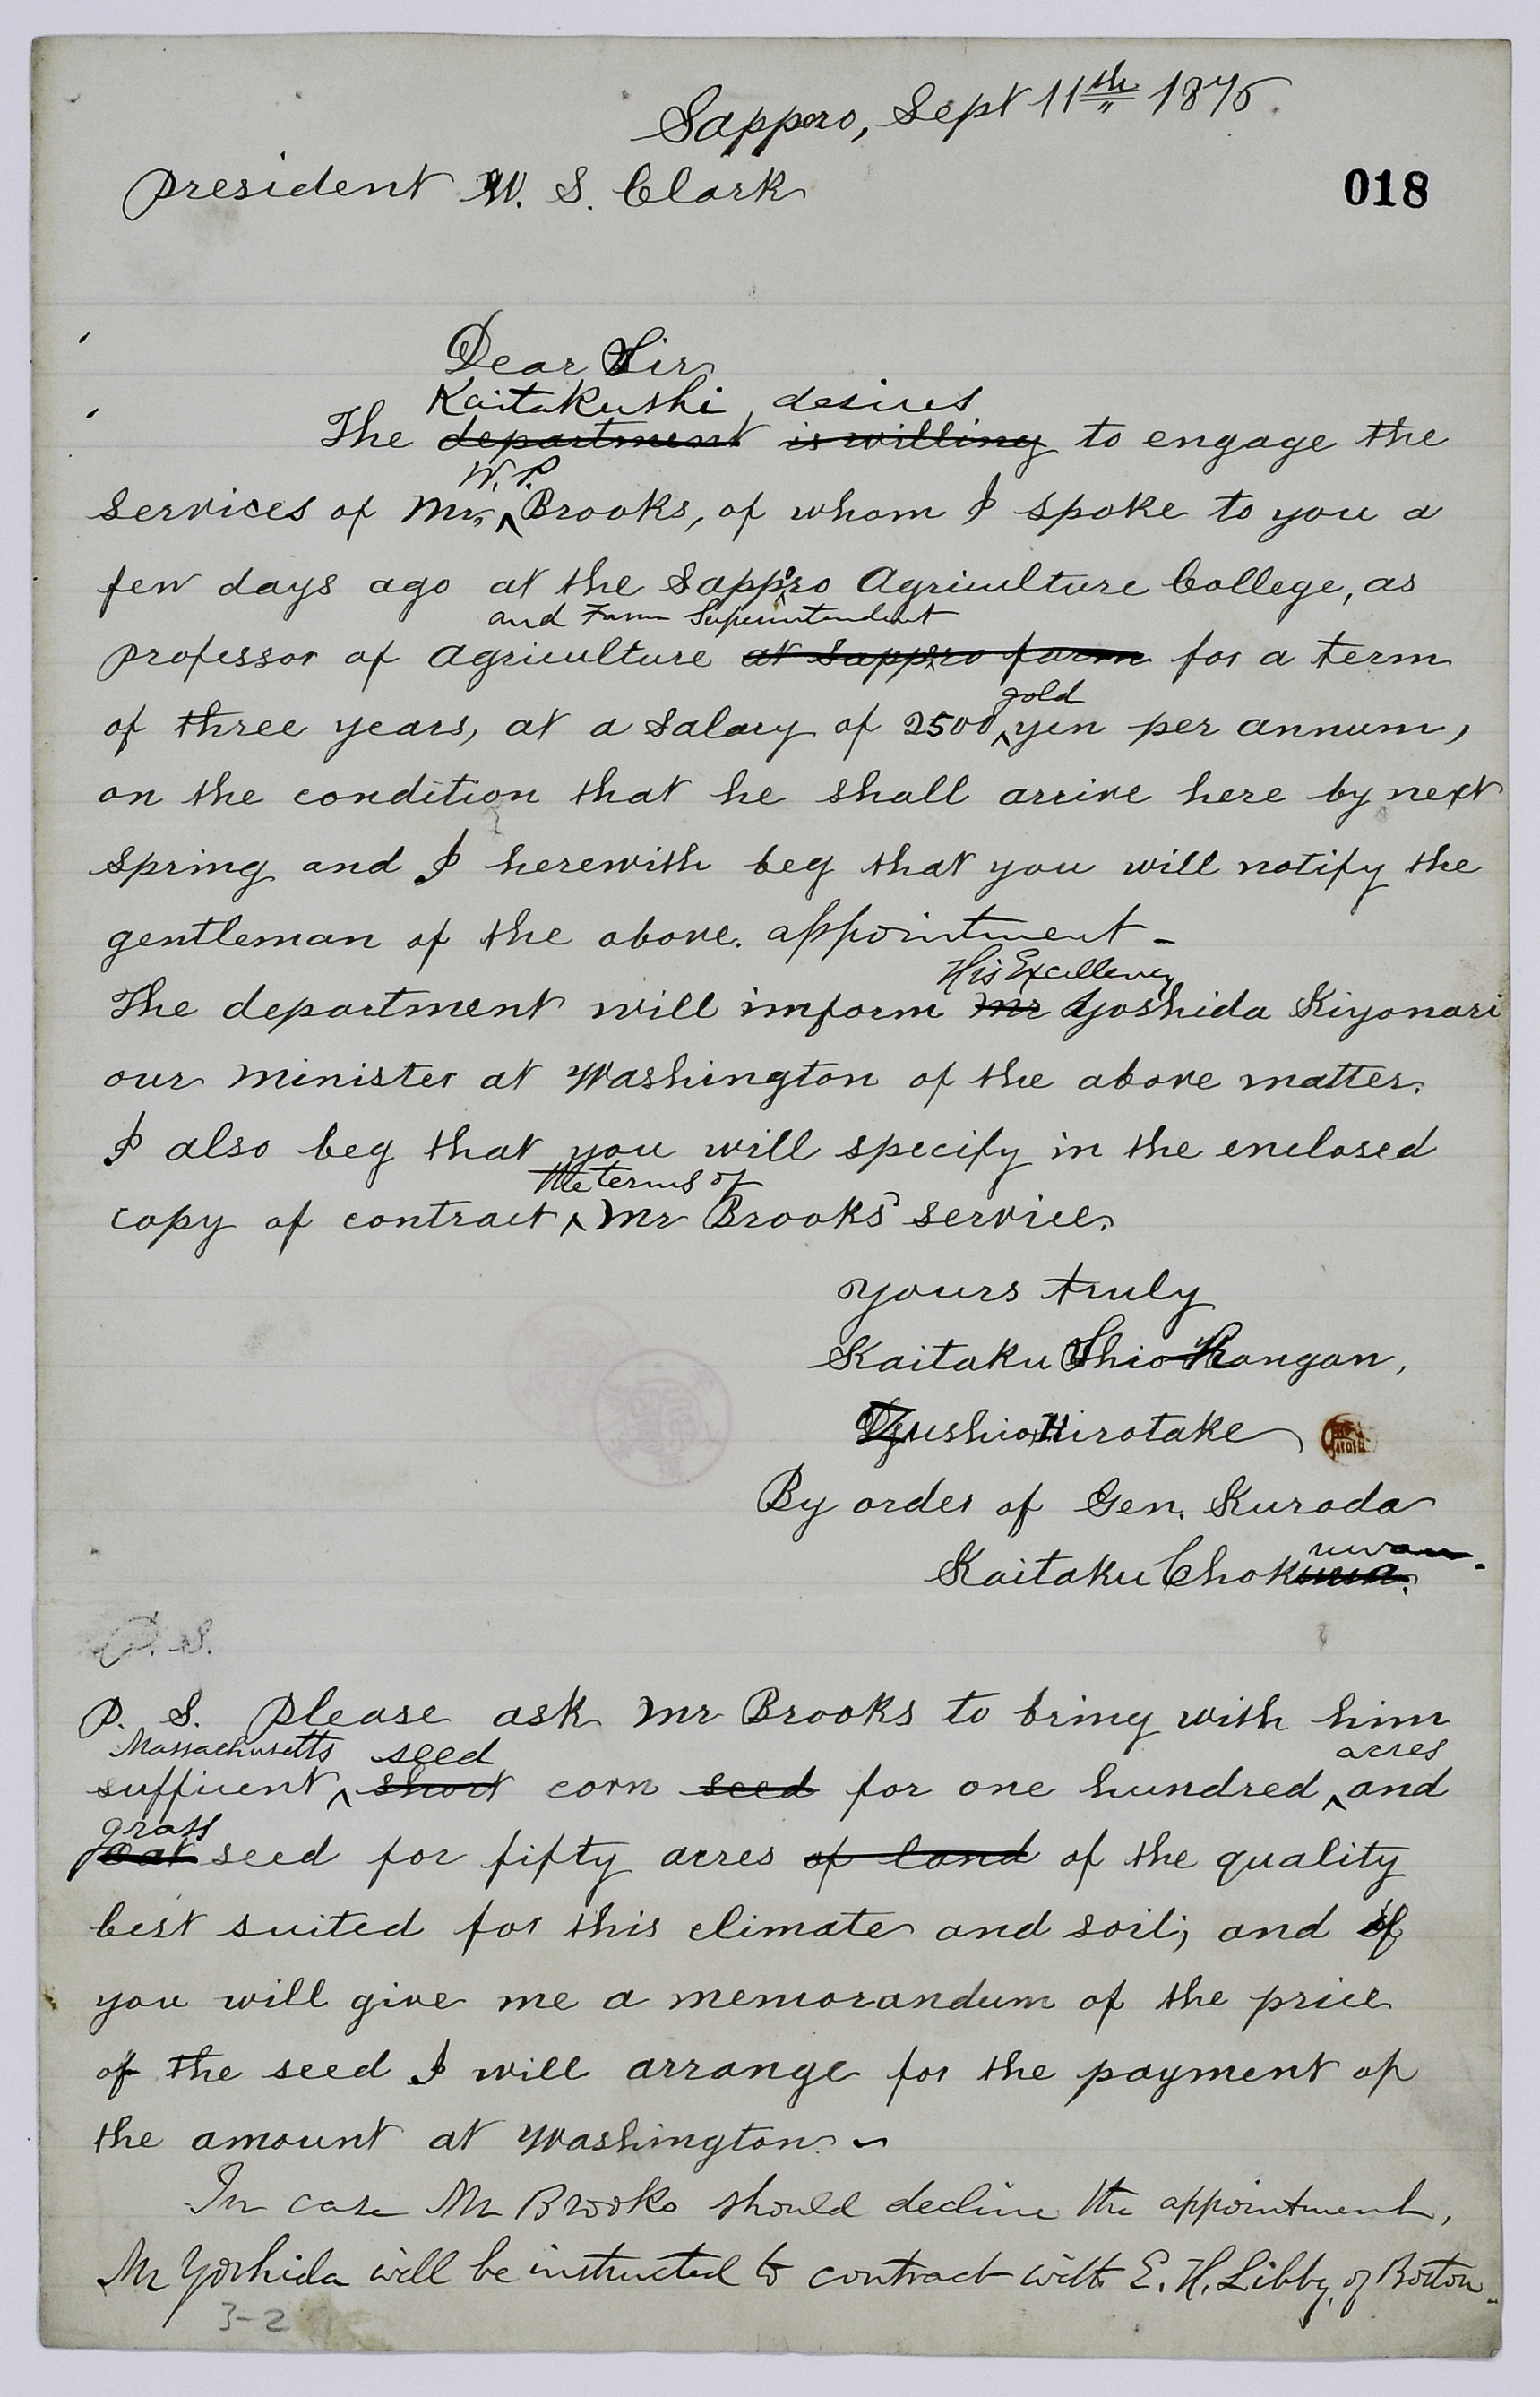 Sapporo, Sept 11th 1876.
President W. S. Clark
018
Dear Sir
Kaitakushi desires
The department is willing to engage the
W. P.
services of Mr. Brooks, of whom I spoke to you a
few days ago at the Sapporo Agriculture College, as
and Farm Superintendent
Professor of Agriculture at Sapporo farm for a term
gold
of three years, at a salary of 2500 yen per annum,
on the condition that he shall arrive here by next
spring and I herewith beg that you will notify the
gentleman of the above. appointment -
His Excellency
The department will imform Mr Yoshida Kiyonari
our Minister at Washington of the above matter.
I also beg that you will specify in the enclosed
the terms of
copy of contract Mr Brooks' service.
Yours truly
Kaitaku Shio Hangan,
Zushio Hirotake
By order of Gen. Kuroda
Kaitaku Chok
P. S.
P. S. Please ask Mr Brooks to bring with him
Massachusetts seed acres
sufficent short corn seed for one hundred and
grass
oat seed for fifty acres of land of the quality
best suited for this climate and soil; and if
you will give me a memorandum of the price
of the seed I will arrange for the payment of
the amount at Washington -
In case Mr Brooks should decline the appointment,
Mr Yoshida will be instructed to contract with E. H. Libby, of Boston.
3-2